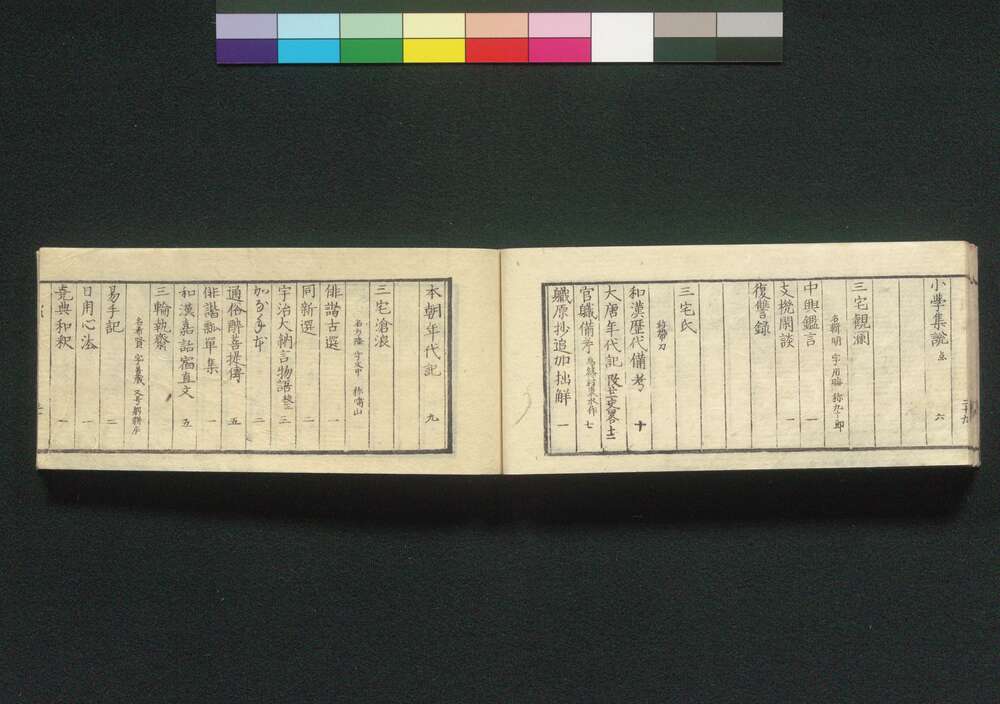 小學集說 六
三宅觀瀾
名緝明 字用晦 称九十郎
中興鑑言 一
支機閑談 一
復讐録
三宅氏
称帶刀
和漢歷代備考 十
大唐年代記
官職備考 七
職原抄追加拙解 一
本朝年代記 九
三宅滄浪
称嘯山
俳諧古選
同新選 二
宇治大納言物語 三
通俗醉菩提傳 五
俳諧瓢單集 一
和漢嘉話宿直文 五
三輪執齋
名希賢 字善藏 又号躬耕庐
易手記 二
日用心法 一
堯典和釈 一